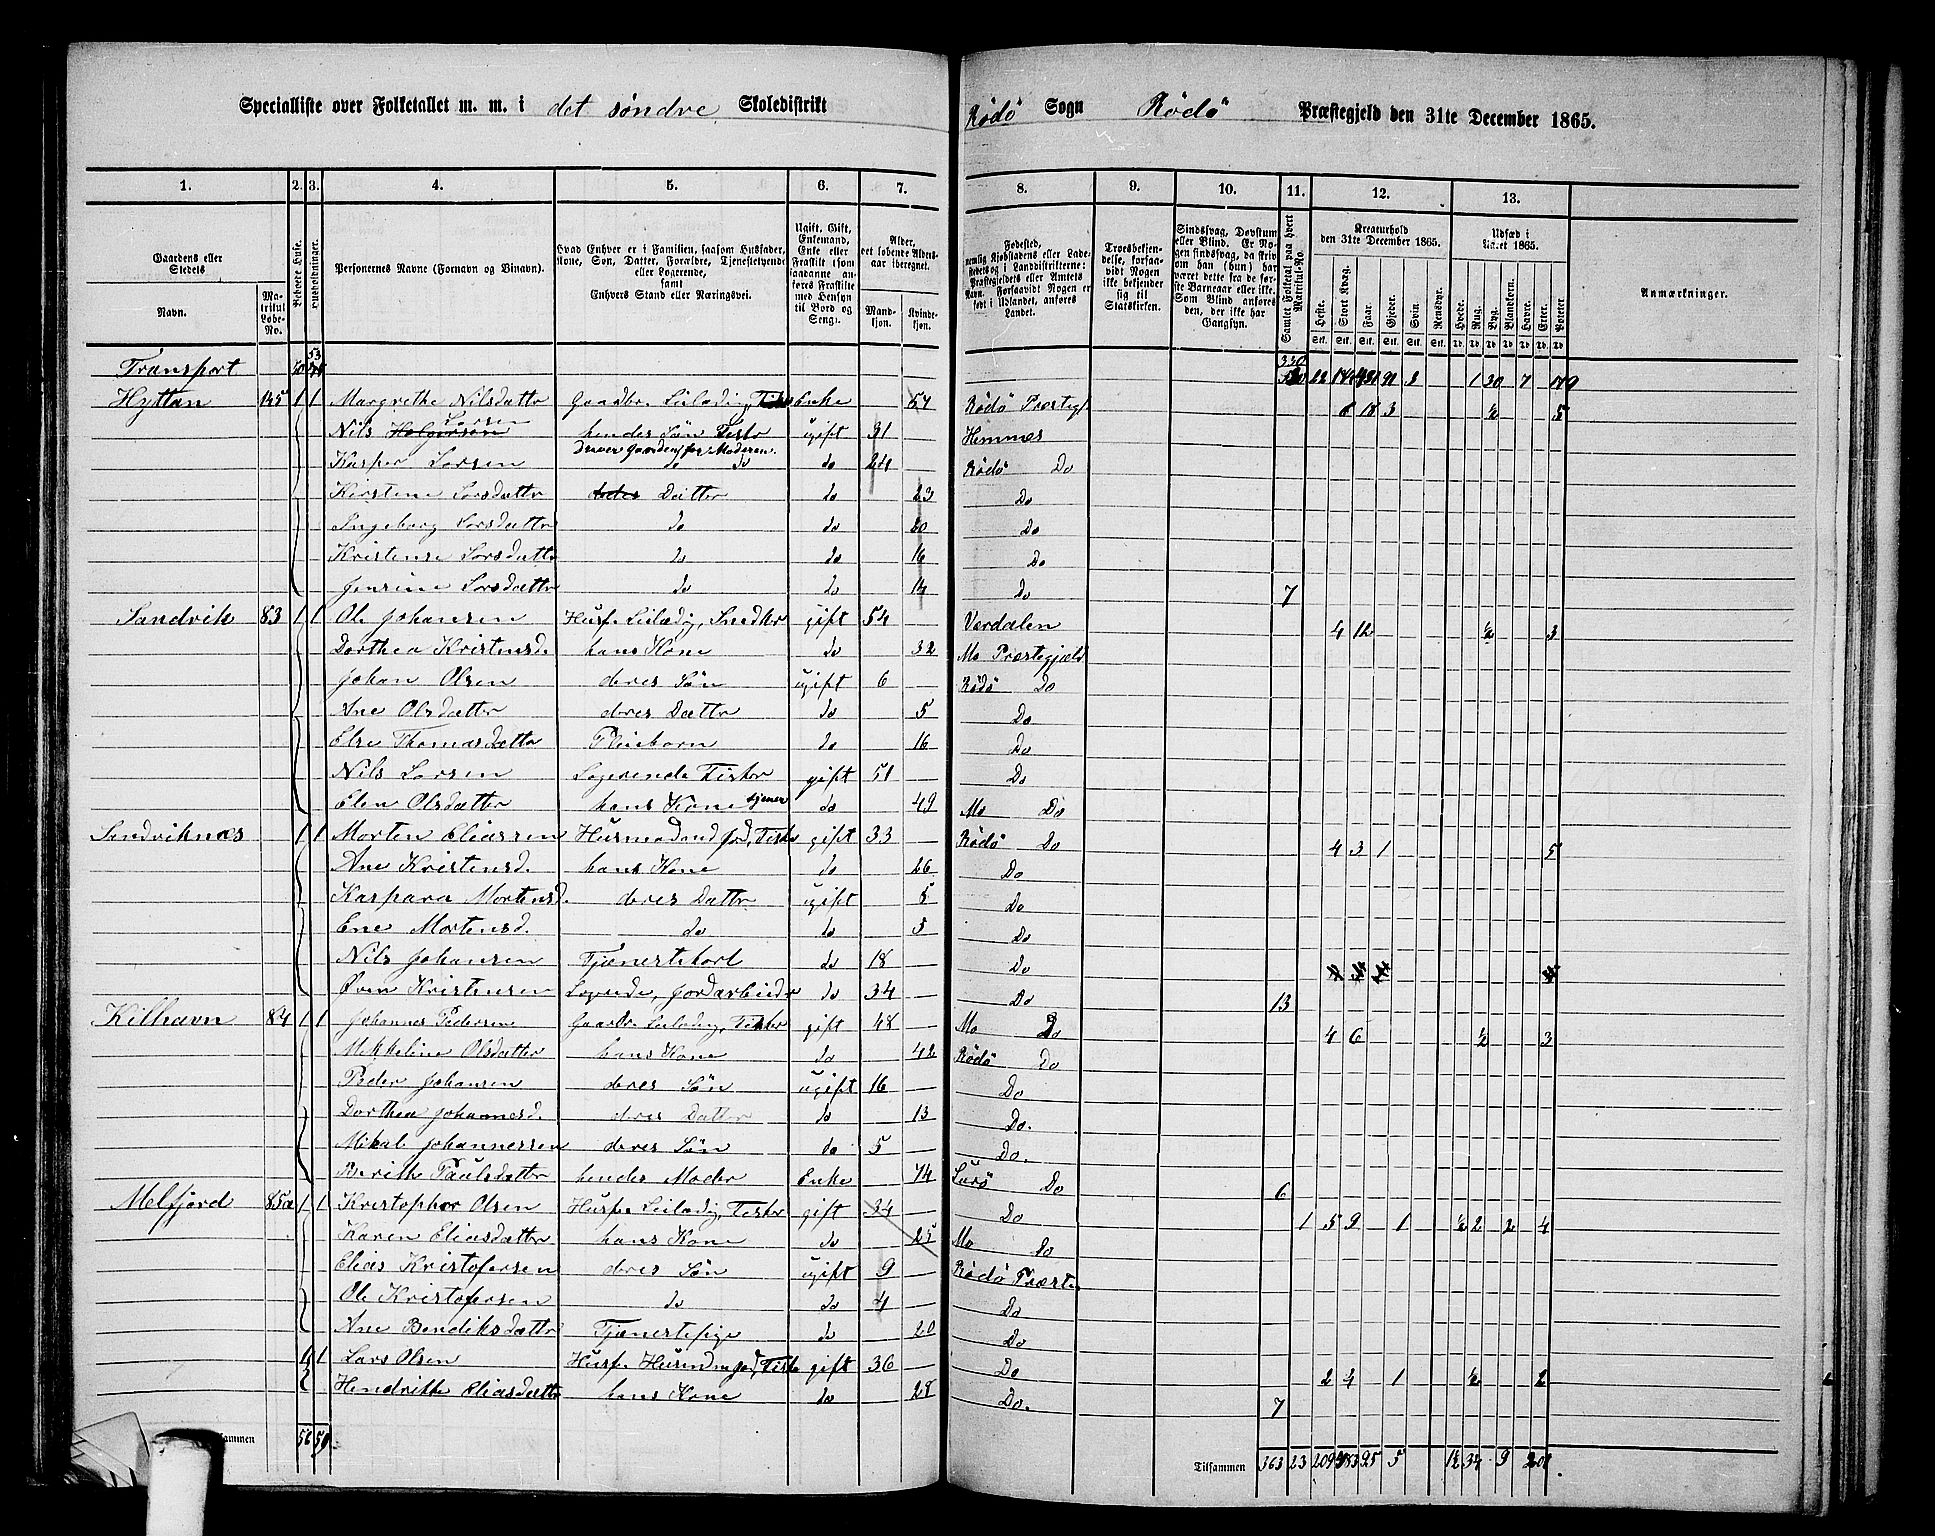 Specialliste over Folketallet m. m. i det søndre Skoledistrikt Rödö Sogn Rödö Præstegjeld den 31te December 1865.
1. 2. 3. 4. 5. 6. 7. 8. 9. 10. 11. 12. 13.
Gaardens eller Stedets Navn. Matrikul Løbe-No. Beboede Huse. Husholdninger. Personernes Navne (Fornavn og Tilnavn). Hvad Enhver er i Familien, saasom Husfader, Kone, Søn, Datter, Forældre, Tjenestetyende eller Logerende, samt Enhvers Stand eller Næringsvei. Ugift, Gift, Enkemand, Enke eller Fraskilt Alder, det løbende Aldersaar iberegnet. Mandkjøn. Kvindekjøn. Fødested, Troesbekjendelse, forsaavidt Nogen ikke bekjender sig til Statskirken. Sindssvag, Døvstum eller Blind. Samlet Folketal paa hvert Matrikul-No. Kreaturhold den 31te December 1865. Heste. Stort Kvæg. Faar. Gjeder. Svin. Rensdyr. Udsæd i Aaret 1865. Hvede. Rug. Byg. Blandkorn. Havre. Erter. Poteter. Anmærkninger.
Transport 53 330 22 2 1 30 7
Hyttan 145 1 1 Margrethe Nilsdattr Gaardbr. Leilædig, Enke 57 Rödö Præstegj. 8 18 3 ½ 5
Nils Larsen hendes Søn Fiskr ugift 31 Hemnes
driver Gaarden for Moderen.
Kasper Larsen do do do 24 Rödö Do
Kirstine Larsdattr Datter do 23 Do
Ingeborg Larsdattr do do 20 Do
Kristense Larsdattr do do 16 Do
Jensine Larsdattr do do 14 Do 7
Sandvik 83 1 1 Ole Johansen Husf. Leilædig, Snedker gift 54 Værdalen 4 12 ½ 3
Dorthea Kristensd. hans Kone do 32 Mo Præstegjæld
Johan Olsen deres Søn ugift 6 Rödö Do
Ane Olsdattr deres Dattr do 5 Do
Else Thomasdattr Pleiebarn do 16 Do
Nils Larsen Logerende Fisker gift 51 Do
Elen Olsdattr hans Kone do 49 Mo Do
Sandviknæs 1 1 Morten Eliassen Husmadmd Jord, Fiskr gift 33 Rödö Do 4 3 1 5
Ane Kristensd. hans Kone do 26 Do
Kaspara Mortensd. deres Dattr ugift 5 Do
Ene Mortensd. do do 3 Do
Nils Johansen Tjænestekarl do 18 Do
Kristensen Logrende, Jordarbeidr do 34 Do 13
Kilhavn 84 1 1 Johannes Pedersen Gaardbr. Leilædig, Fisker gift 48 Mo Do 4 6 ½ 3
Mekkeline Olsdatter hans Kone do 42 Rödö Do
Peder Johansen deres Søn ugift 16 Do
Dorthea Johannesd. deres Datter do 13 Do.
Mikal Johannessen deres Søn do 5 Do.
Berithe Paulsdattr hendes Moder Enke 74 Lurö Do 6
Melfjord 85a 1 1 Kristopher Olsen Husf. Leilædig, Fisker gift 34 Do 1 5 9 1 ½ 2 2 4
Karen Eliasdattr hans Kone do 25 Mo Do
Elias Kristofersen deres Søn ugift 9 Rödö Præste
Ole Kristofersen do do 4 Do
Ane Bendiksdattr Tjænestepige do 20 Do
1 1 Lars Olsen Husf. Husmdm Jord, Fiskr gift 36 Do 2 4 1 ½ 2
Hendrikke Eliasdattr hans Kone do 28 Do. 7
56 59 Tilsammen 363 23 209 95 5 1½ 34 9 201